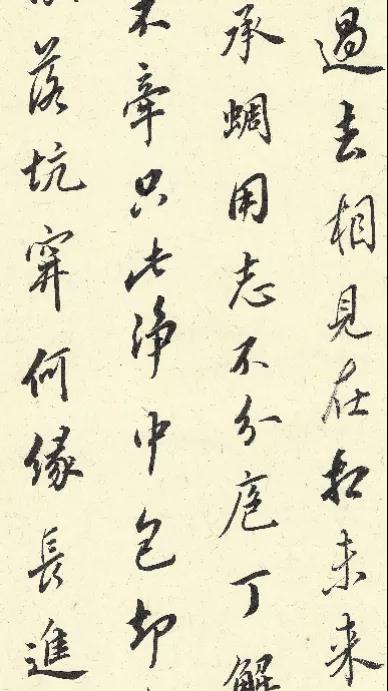 過去相見在相未来
承蜩用志不分庖丁解
不牽只此淨中包却
落坑穽何緣長進